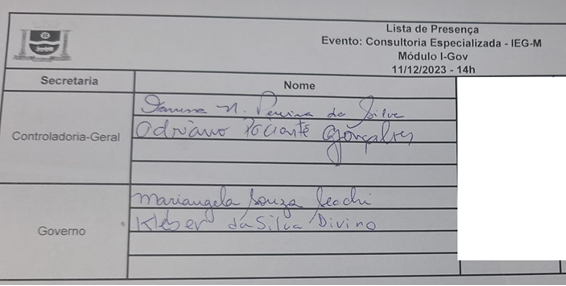 Lista de Presença
Evento: Consultoria Especializada - IEG-M
Módulo I-Gov
11/12/2023 - 14h
Secretaria
Nome
Controladoria-Geral
N. Pereira da Silva
Adriano Gonçalves
Governo
Mariangela Souza
Kleber da Silva Divino